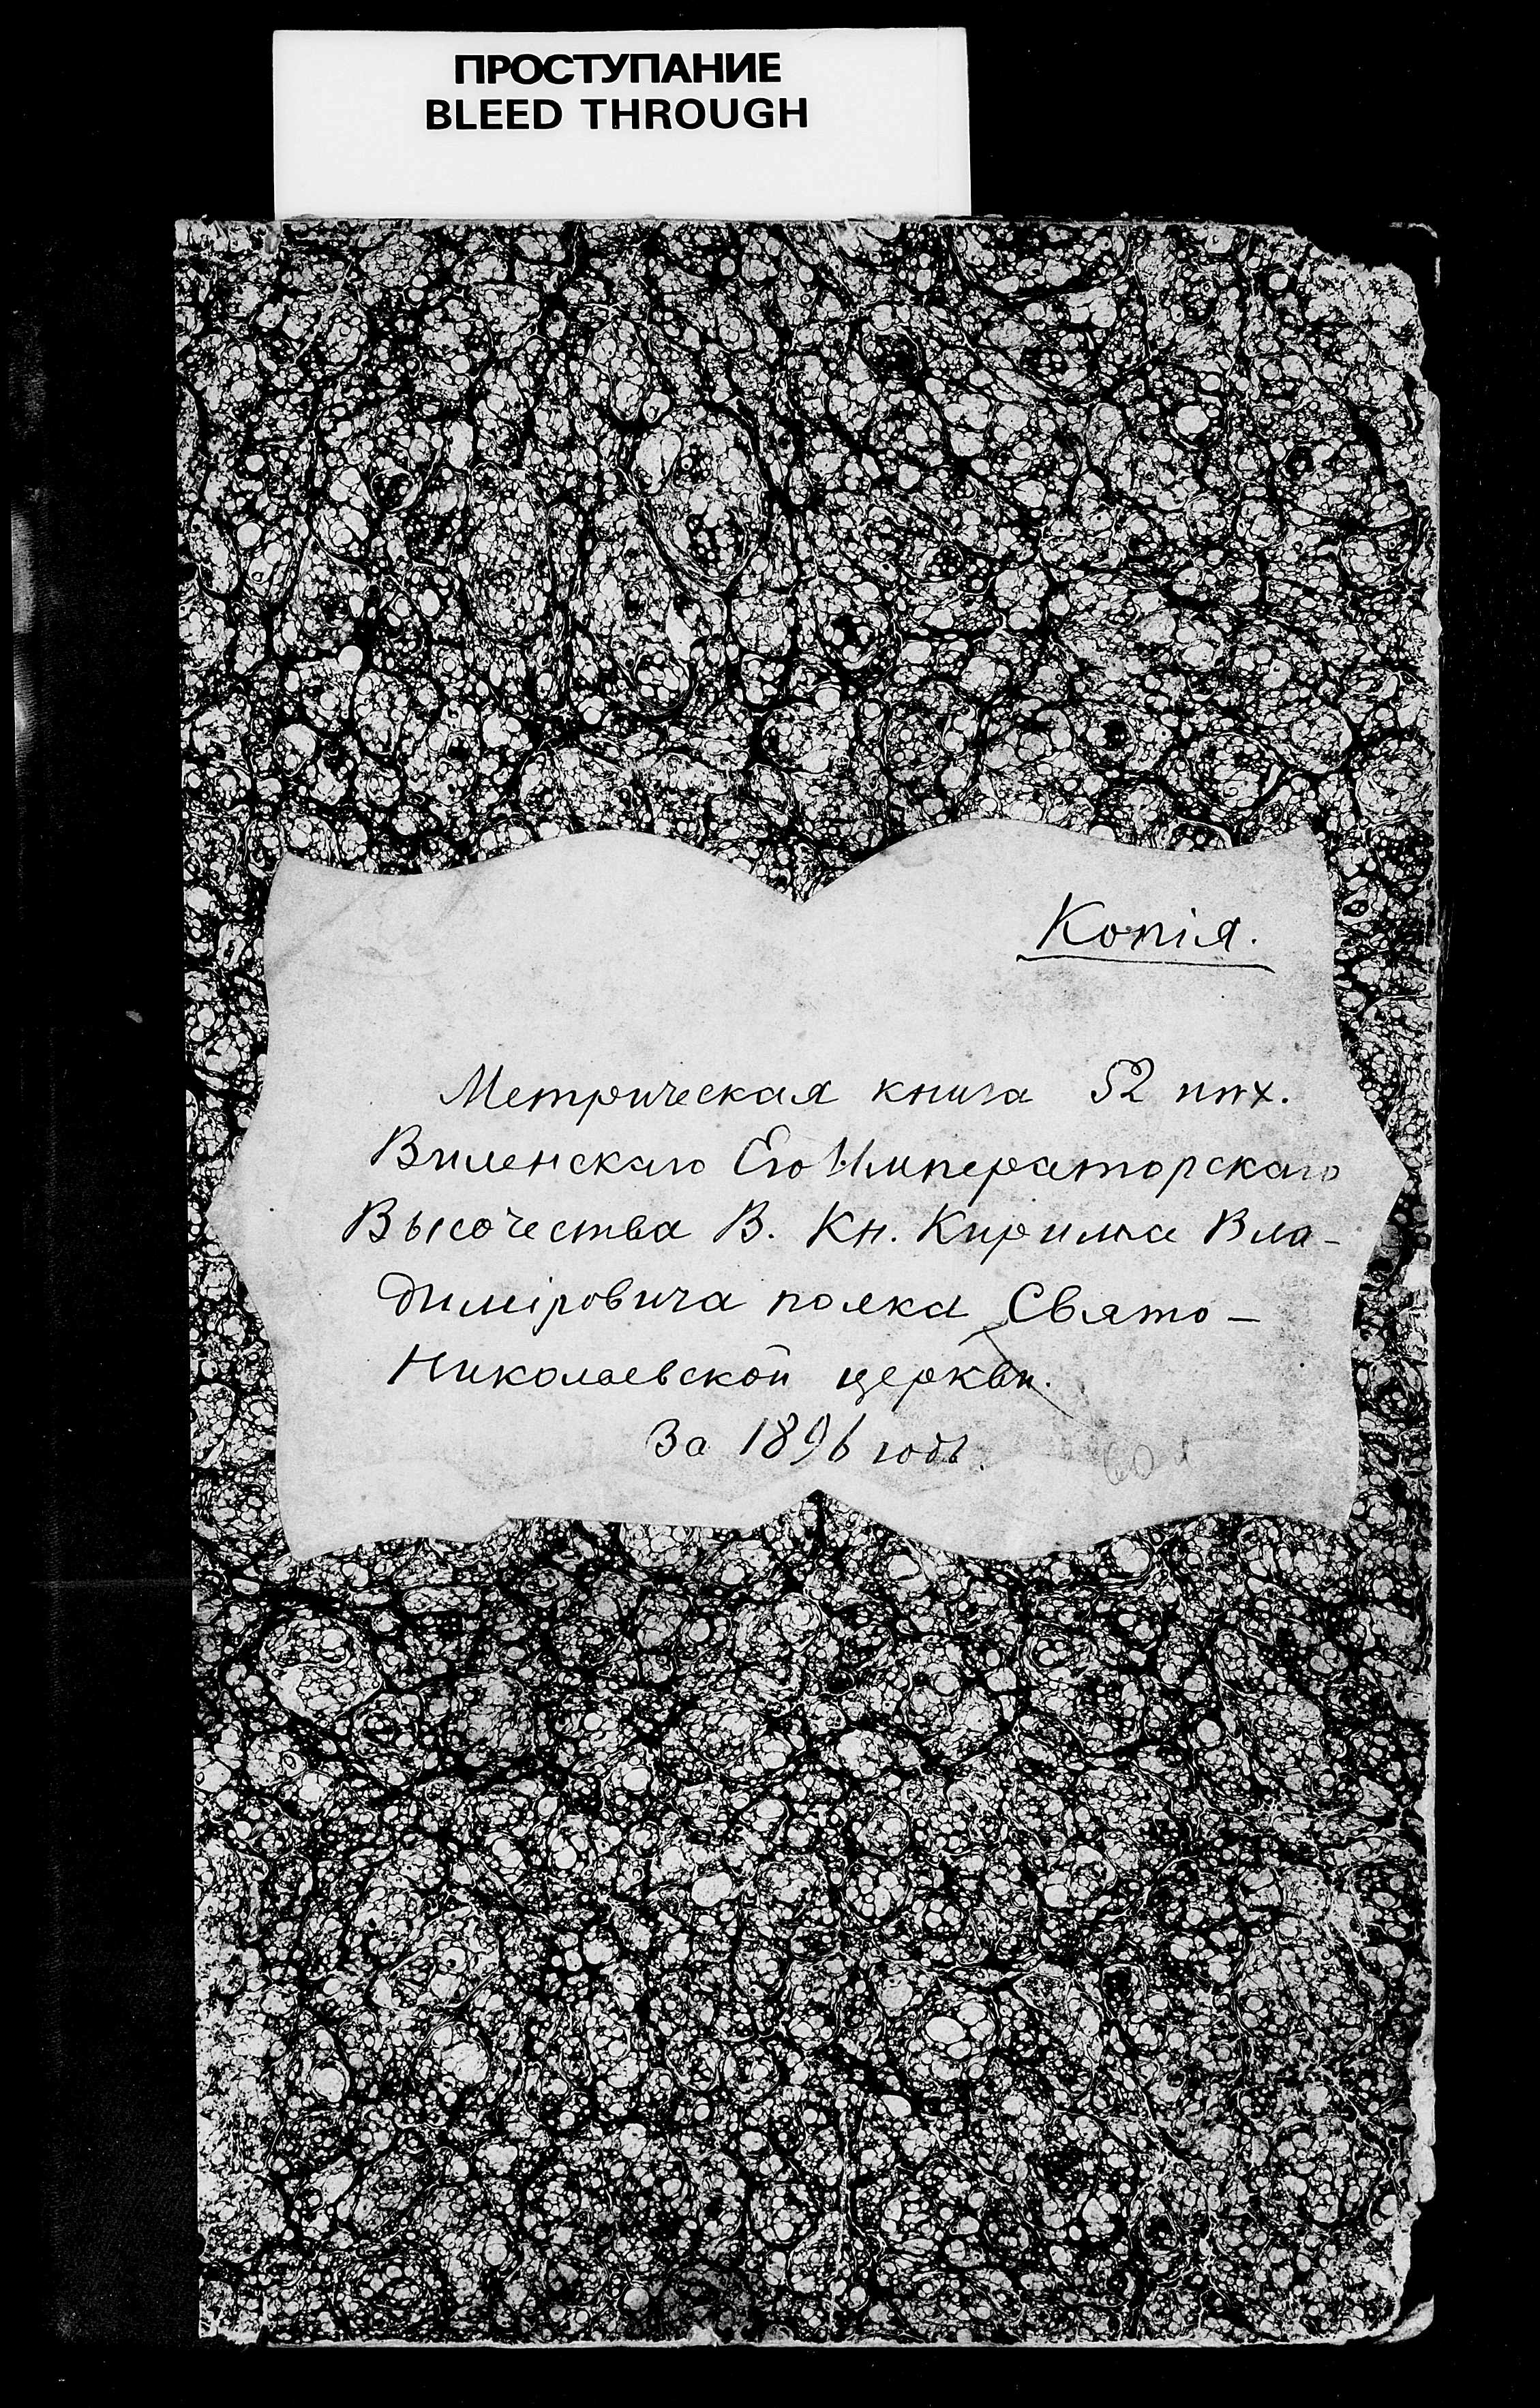 ПРОСТУПАНИЕ
BLEED THROUGH
Копія.
Метрическая книга 52 пѣх.
Виленскаго Его Императорскаго
Высочества В. Кн. Кирилла Вла-
диміровича полка Свято-
Николаевской церкви.
За 1896 годъ.